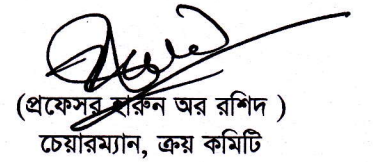 (প্রফেসর হারুন অর রশিদ )
চেয়ারম্যান, ক্রয় কমিটি